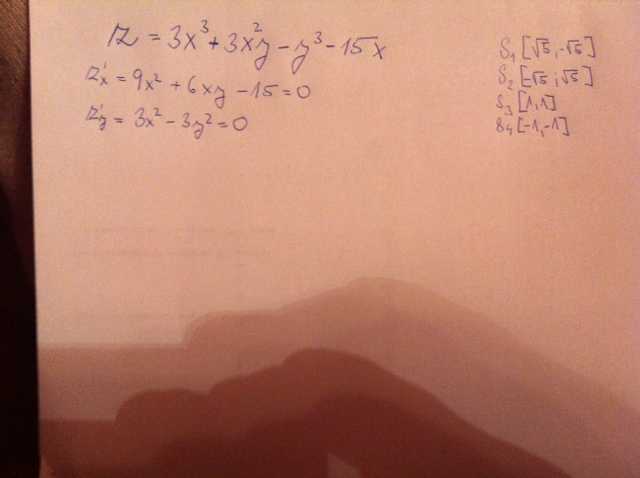 z = 3x³ + 3x²y - y³ - 15x
z'x = 9x² + 6xy - 15 = 0
z'y = 3x² - 3y² = 0
S₁ [√5, -√5]
S₂ [-√5 ; √5]
S₃ [1, 1]
S₄ [-1, -1]